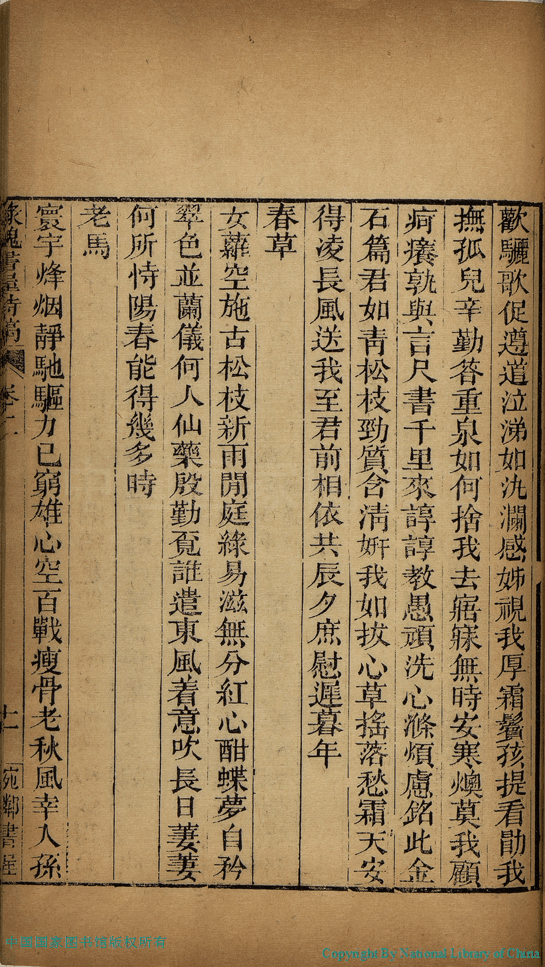 歡驪歌促遵道泣涕如汍瀾感姊視我厚霜鬢孩提看勖我
撫孤兒辛勤答重泉如何捨我去寤寐無時安寒燠莫我顧
疴癢孰與言尺書千里來諄諄教愚頑洗心滌煩慮銘此金
石篇君如靑松枝勁質含淸姸我如拔心草搖落愁霜天安
得凌長風送我至君前相依共辰夕庶慰遲暮年
春草
女蘿空施古松枝新雨閒庭綠易滋無分紅心酣蝶夢自矜
翠色並蘭儀何人仙藥殷勤覓誰遣東風着意吹長日萋萋
何所恃陽春能得幾多時
老馬
寰宇烽烟靜馳驅力已窮雄心空百戰瘦骨老秋風幸入孫
綠槐書屋詩稿 卷二 十一 宛鄰書屋
中国国家图书馆版权所有
Copyright By National Library of China